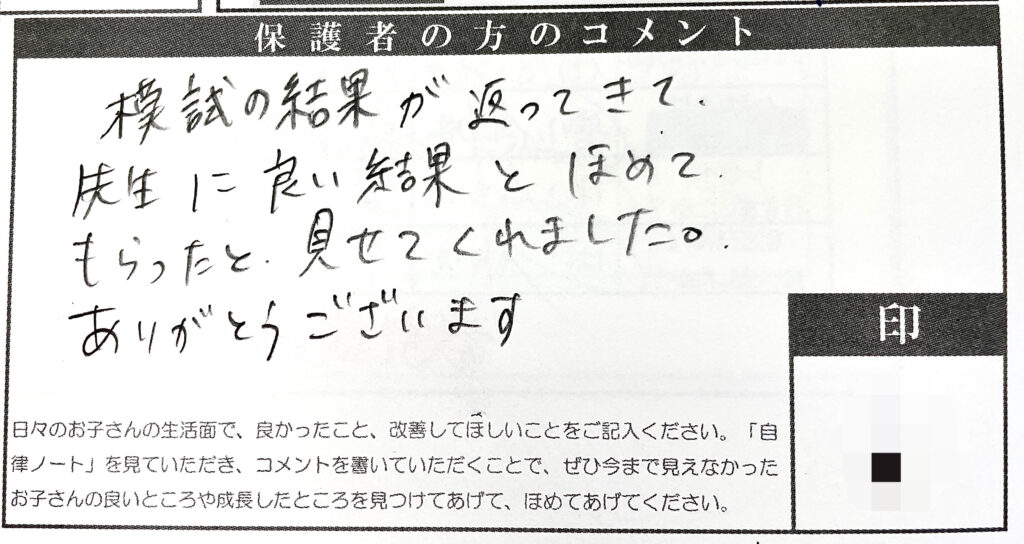 保護者の方のコメント
模試の結果が返ってきて、
先生に良い結果とほめて
もらったと、見せてくれました。
ありがとうございます
印
日々のお子さんの生活面で、良かったこと、改善してほしいことをご記入ください。「自
律ノート」を見ていただき、コメントを書いていただくことで、ぜひ今まで見えなかった
お子さんの良いところや成長したところを見つけてあげて、ほめてあげてください。